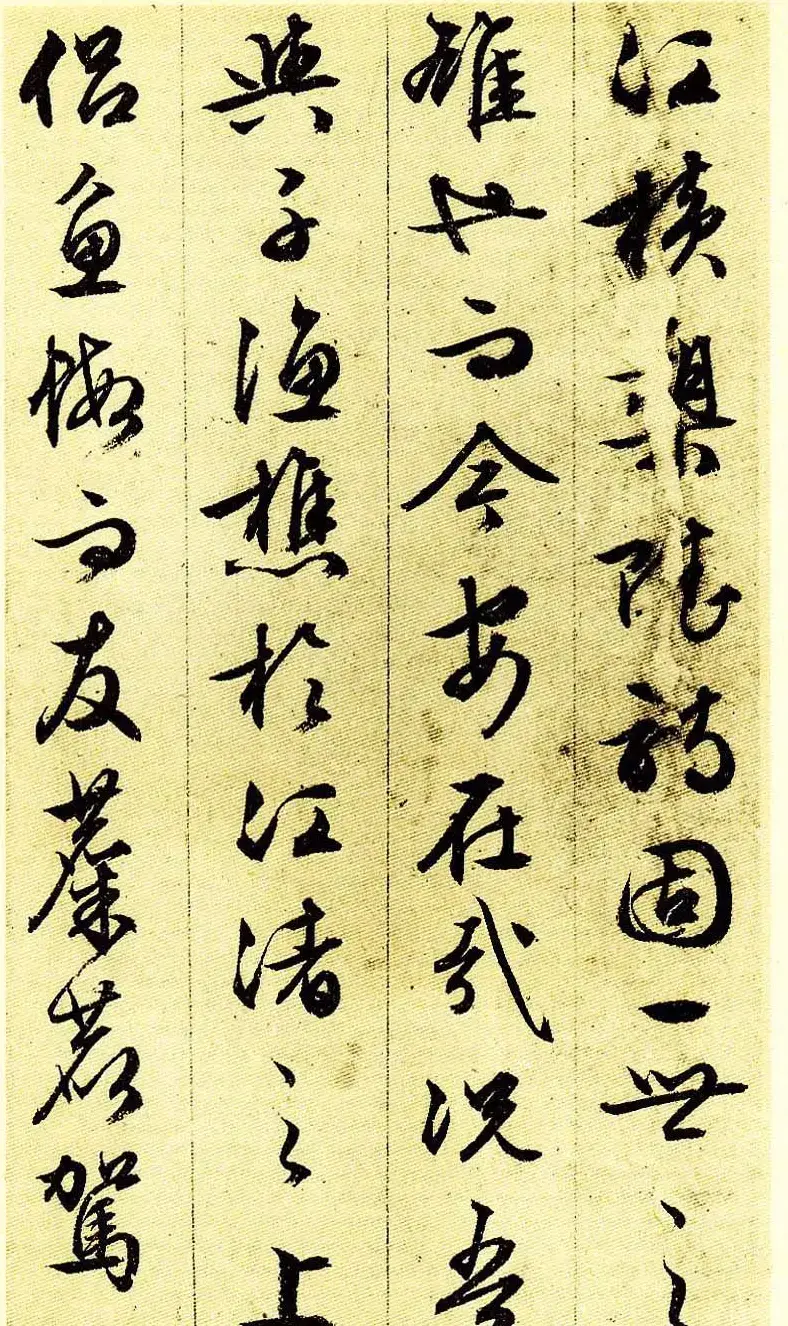 江橫槊賦詩固一世之
雄也而今安在哉況吾
與子漁樵於江渚之上
侶魚蝦而友麋鹿駕